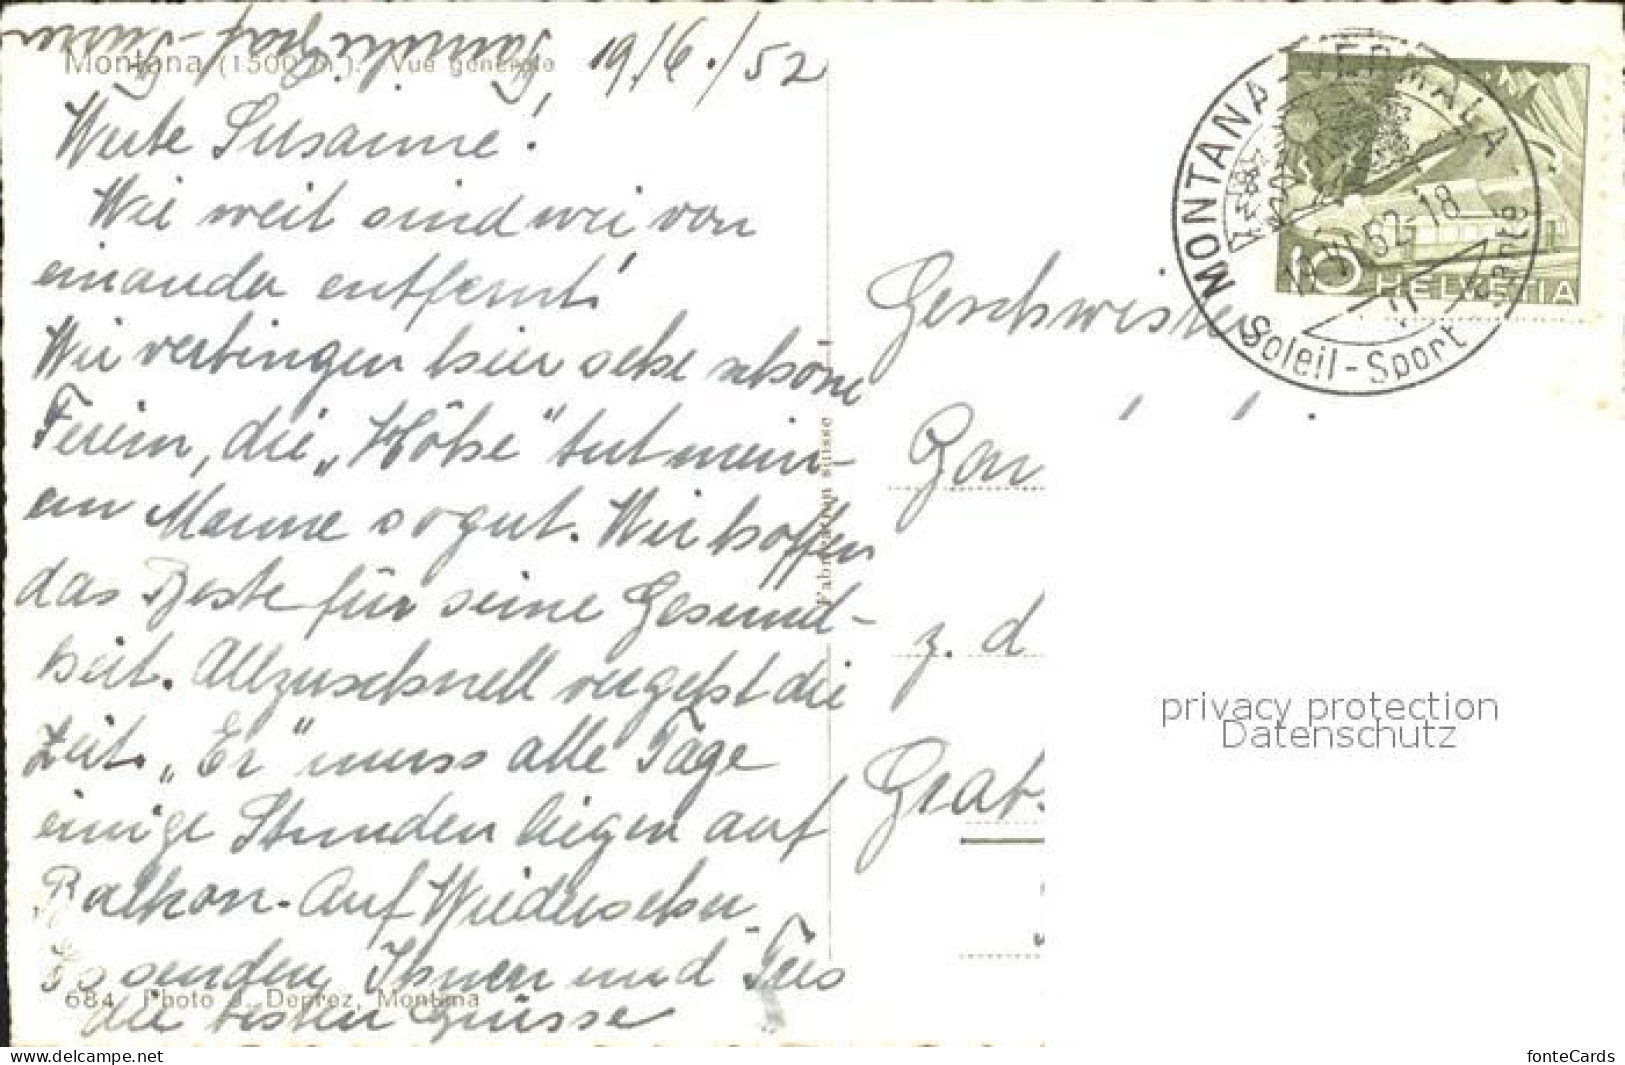 19./6./52
Montana (1500 m.). Vue générale
Werte Susanne!
Wie weit sind wir von
einander entfernt!
Wir verbringen hier sehr schöne
Ferien, die „Höhe" tut mein-
em Manne so gut. Wir hoffen
das Beste für seine Gesund-
heit. Allzuschnell vergeht die
Zeit. „Er" muss alle Tage
einige Stunden liegen auf
Balkon. Auf Wiedersehen
Es senden Ihnen und
die besten Grüsse
684 Photo J. Deprez, Montana
Fabrication suisse
MONTANA-VERMALA
52-18
Soleil-Sport Santé
10 HELVETIA
Geschwister
z. d
Grabs
privacy protection
Datenschutz
www.delcampe.net
fonteCards